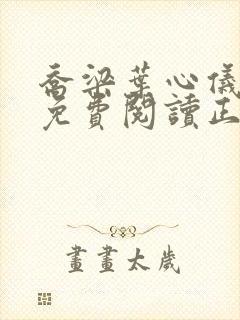 喬梁葉心儀
免費閱讀正
畫畫太歲